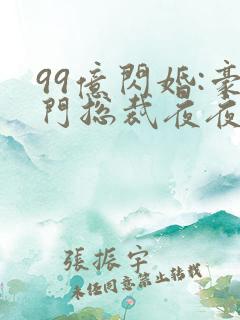 99億閃婚:豪
門總裁夜夜
張振宇
未任同意禁止轉載